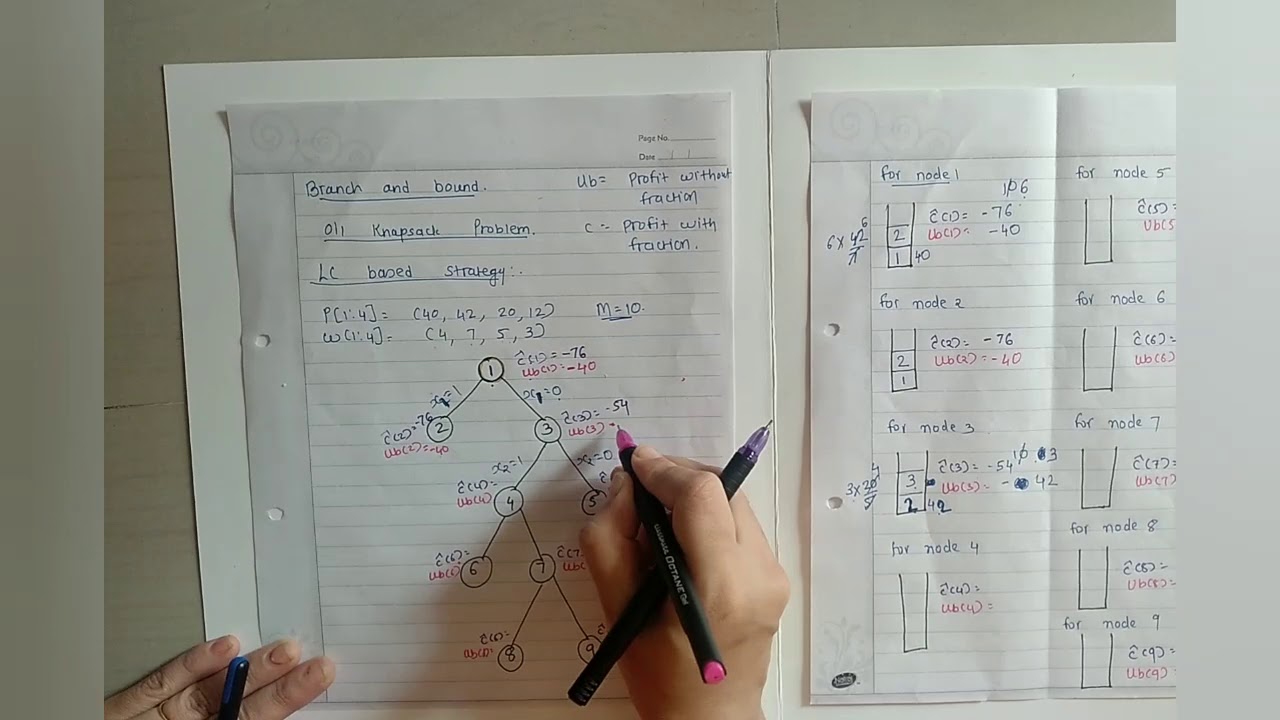 Page No.
Date
Branch and bound.
Ub= Profit without
fraction
0/1 Knapsack Problem.
C = Profit with
fraction.
LC based strategy:.
P[1:4]= (40, 42, 20, 12) M=10.
w[1:4]= (4, 7, 5, 3)
1
ĉ(1)=-76
Ub(1)=-40
x₁=1
x₁=0
ĉ(2)=-76
Ub(2)=-40
2
3
ĉ(3)= -54
Ub(3)
x₂=1
x₂=0
ĉ(4)=
Ub(4)
4
5
ĉ(6)=
Ub(6)
6
7
ĉ(7
8
9
for node 1
1̸0 6
6 × 42
7
6
2
1
40
ĉ(1)= -76
Ub(1)= -40
for node 2
2
1
ĉ(2)= -76
Ub(2)= -40
for node 3
1̸0 3
3 × 20
5
4
3
2
42
ĉ(3)= -54
Ub(3)= - 42
for node 4
ĉ(4)=
Ub(4)=
for node 5
ĉ(5)=
Ub(5
for node 6
ĉ(6)=
Ub(6)
for node 7
ĉ(7)=
Ub(7)
for node 8
ĉ(8)=
Ub(8)=
for node 9
ĉ(9)=
Ub(9)=
OCTANE